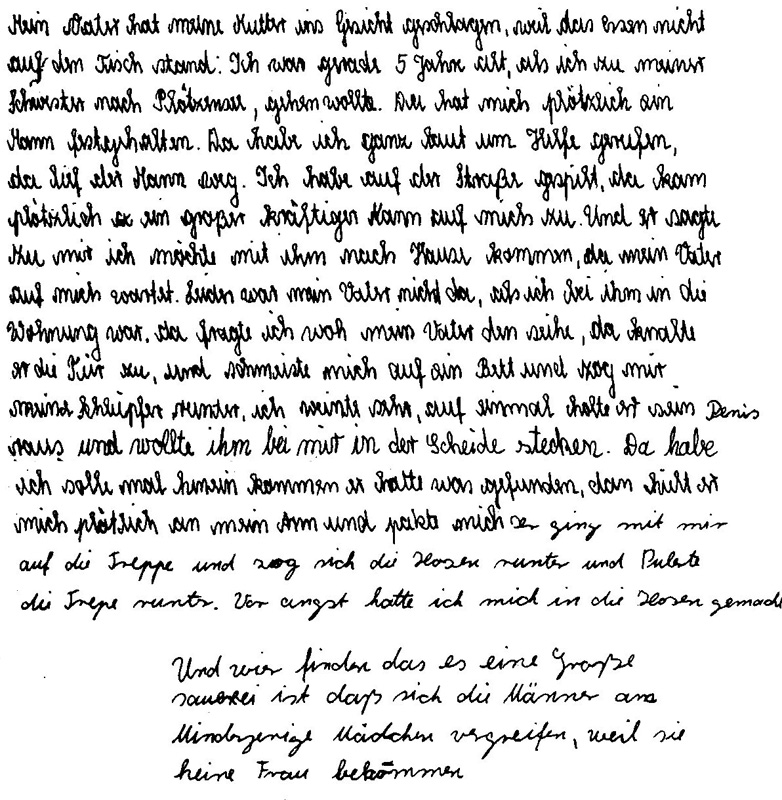 Mein Vater hat meine Mutter ins Gesicht geschlagen, weil das Essen nicht
auf den Tisch stand. Ich war gerade 5 Jahre alt, als ich zu meiner
Schwester nach Plötzensee, gehen wollte. Der hat mich plötzlich ein
Mann festgehalten. Da habe ich ganz laut um Hilfe gerufen,
da lief der Mann weg. Ich habe auf der Straße gespilt, da kam
plötzlich ein großer kräftiger Mann auf mich zu. Und er sagte
zu mir ich möchte mit ihm nach Hause kommen, da mein Vater
auf mich wartet. Leider war mein Vater nicht da, als ich bei ihm in die
Wohnung war. da fragte ich woh mein Vater den seihe, da knalte
er die Tür zu, und schmeiste mich auf ein Bett und zog mir
meine Schlüpfer runter, ich weinte sehr, auf einmal holte er sein Denis
raus und wollte ihm bei mir in der Scheide stecken. Da habe
ich solle mal hinein kommen er hatte was gefunden, dan hielt er
mich plötzlich an mein Arm und pakte mich er ging mit mir
auf die Treppe und zog sich die Hosen runter und Pulerte
die Trepe runter. Vor angst hatte ich mich in die Hosen gemacht

Und wier finden das es eine Große
sauerei ist daß sich die Männer ans
Minderjerige Mädchen vergreifen, weil sie
keine Frau bekommen